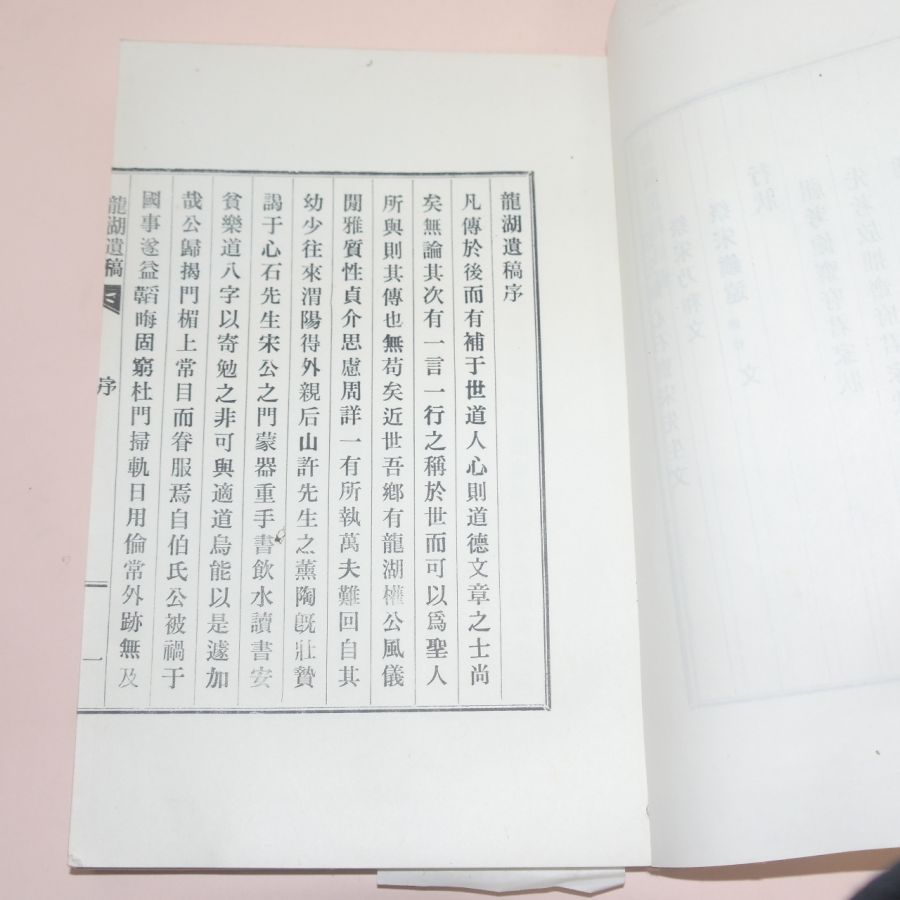 龍湖遺稿序
凡傳於後而有補于世道人心則道德文章之士尚
矣無論其次有一言一行之稱於世而可以爲聖人
所與則其傳也無苟矣近世吾鄕有龍湖權公風儀
閒雅質性貞介思慮周詳一有所執萬夫難回自其
幼少往來渭陽得外親后山許先生之薰陶旣壯贄
謁于心石先生宋公之門蒙器重手書飮水讀書安
貧樂道八字以寄勉之非可與適道烏能以是遽加
哉公歸揭門楣上常目而眷服焉自伯氏公被禍于
國事遂益韜晦固窮杜門掃軌日用倫常外跡無及
龍湖遺稿
序
一
行狀